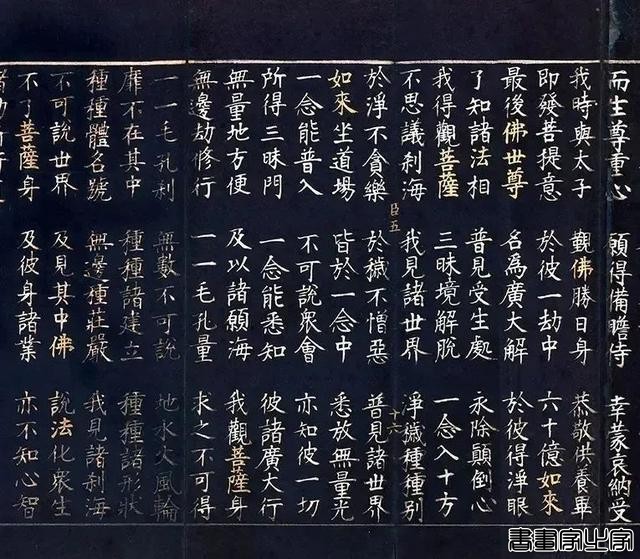 而生尊重心 願得備瞻侍 幸蒙哀納受
我時與太子 觀佛勝日身 恭敬供養畢
即發菩提意 於彼一劫中 六十億如來
最後佛世尊 名為廣大解 於彼得淨眼
了知諸法相 普見受生處 永除顛倒心
我得觀菩薩 三昧境解脫 一念入十方
不思議剎海 我見諸世界 淨穢種種別
十六
於淨不貪樂 於穢不憎惡 普見諸世界
如來坐道場 皆於一念中 悉放無量光
一念能普入 不可說眾會 亦知彼一切
所得三昧門 一念能悉知 彼諸廣大行
無量地方便 及以諸願海 我觀菩薩身
無邊劫修行 一一毛孔量 求之不可得
一一毛孔剎 無數不可說 地水火風輪
靡不在其中 種種諸建立 種種諸形狀
種種體名號 無邊種莊嚴 我見諸剎海
不可說世界 及見其中佛 說法化眾生
不了菩薩身 及彼身諸業 亦不知心智